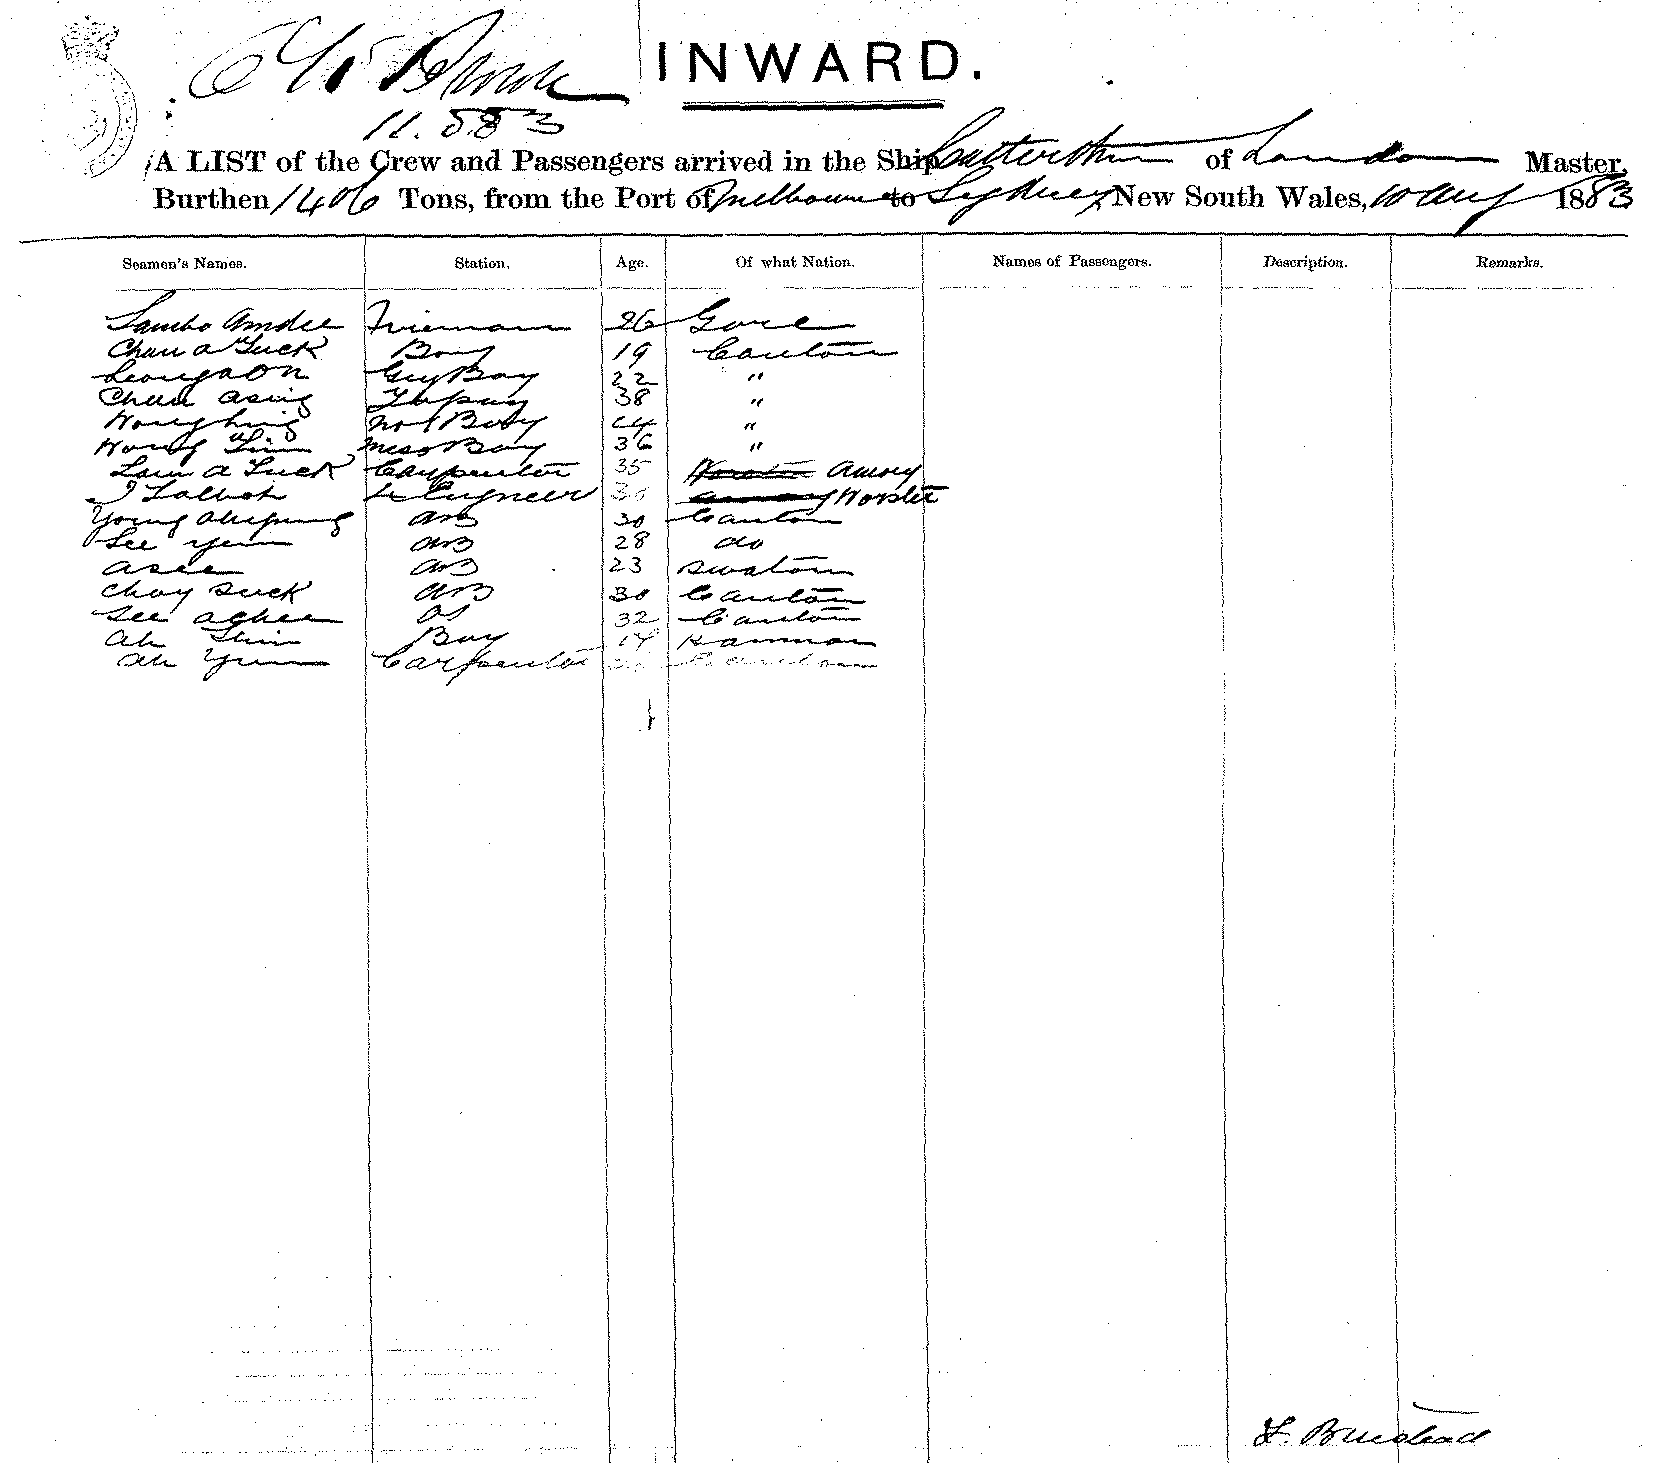 INWARD.
Brown
11. 8 83
A LIST of the Crew and Passengers arrived in the Ship Catterthun of London Master,
Burthen 1406 Tons, from the Port of Melbourne to Sydney New South Wales, 10 Aug 1883
Seamen's Names. Station. Age. Of what Nation. Names of Passengers. Description. Remarks.
Sambo Amdee Fireman 26 Goree
Chan a Tuck Boy 19 Canton
Leong a On Boy 22 "
Chan Asing 38 "
Wong hing Boy "
Wong a Lim Mess Boy 36 "
Lam a Tuck Carpenter 35 Amoy
J Talbot Engineer Worster
Young AB 30 Canton
See Yem AB 28 do
Asee AB 23 Swatow
Choy Suck AB 30 Canton
See Achee OS 32 Canton
Ah Shin Boy 14
Ah Yum Carpenter